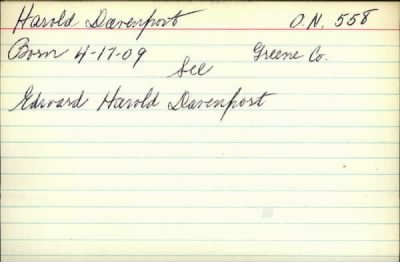 Harold Davenport O.N. 558
Born 4-17-09 See Greene Co.
Edward Harold Davenport